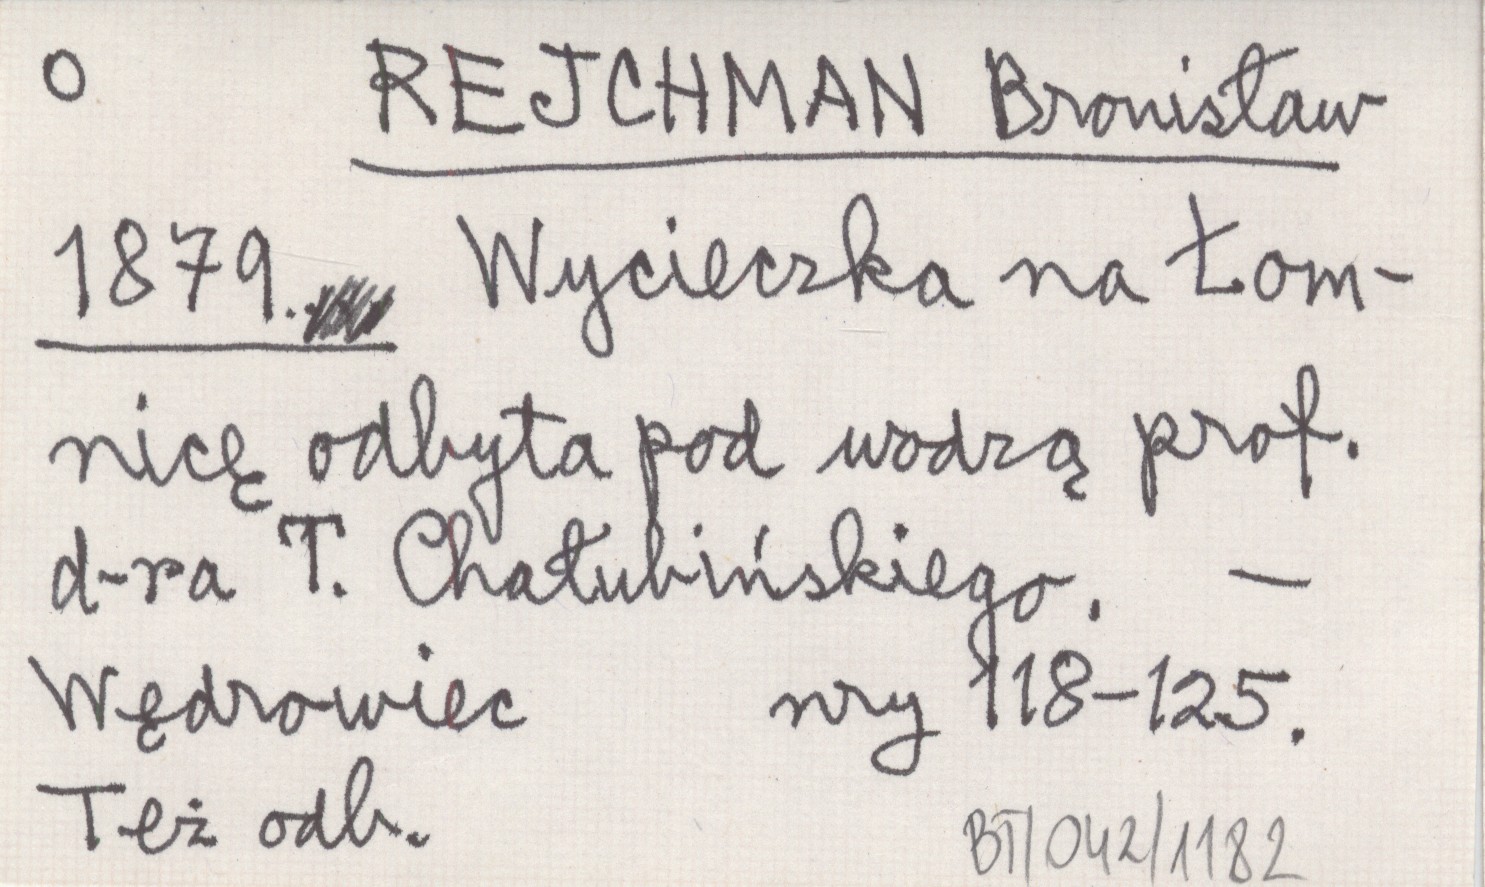 O REJCHMAN Bronisław
1879. Wycieczka na Łom-
nicę odbyta pod wodzą prof.
d-ra T. Chałubińskiego. —
Wędrowiec nry 118-125.
Też odb.
BT/042/1182